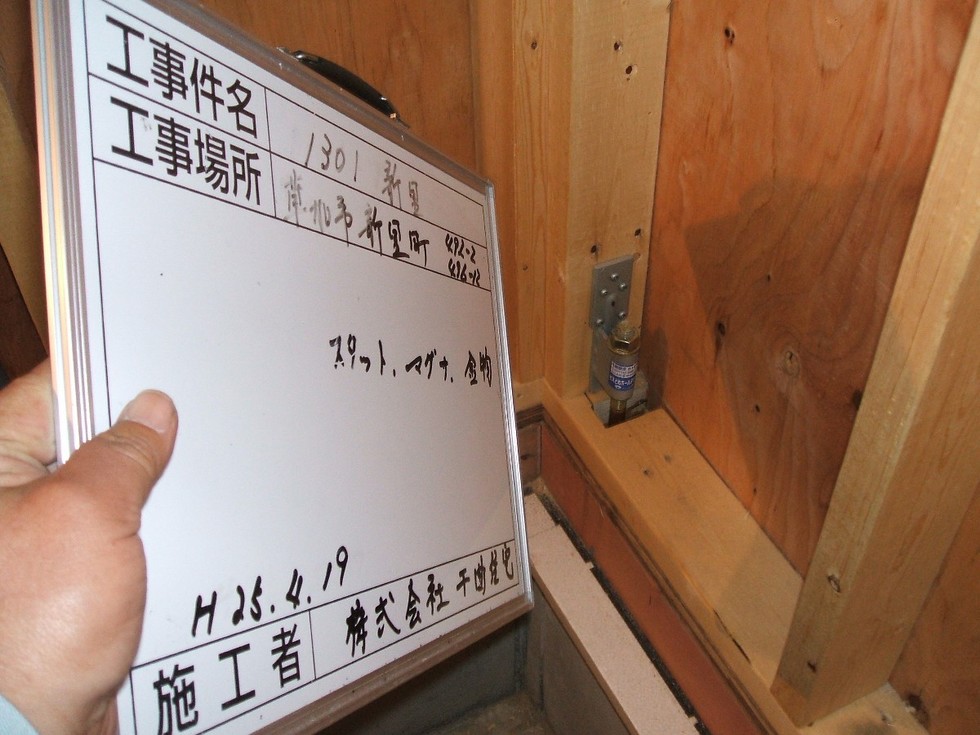 工事件名
1301 新里
工事場所
新里町
492-2
スリット、マグナ、金物
H 25.4.19
施工者
株式会社
住宅